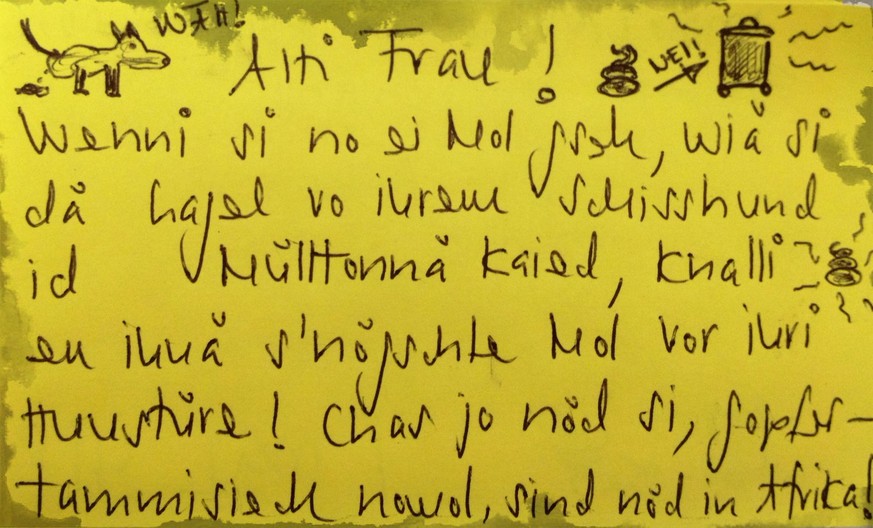 WÄH!
Alti Frau! NEI!
Wenni si no ei Mol gseh, wiä si
dä hagel vo ihrem Schisshund
id Mülltonnä kaied, knalli
en ihnä s'nögschte Mol vor ihri
Huustüre! Chas jo nöd si, gopfer-
tammisiech nomol, sind nöd in Afrika!